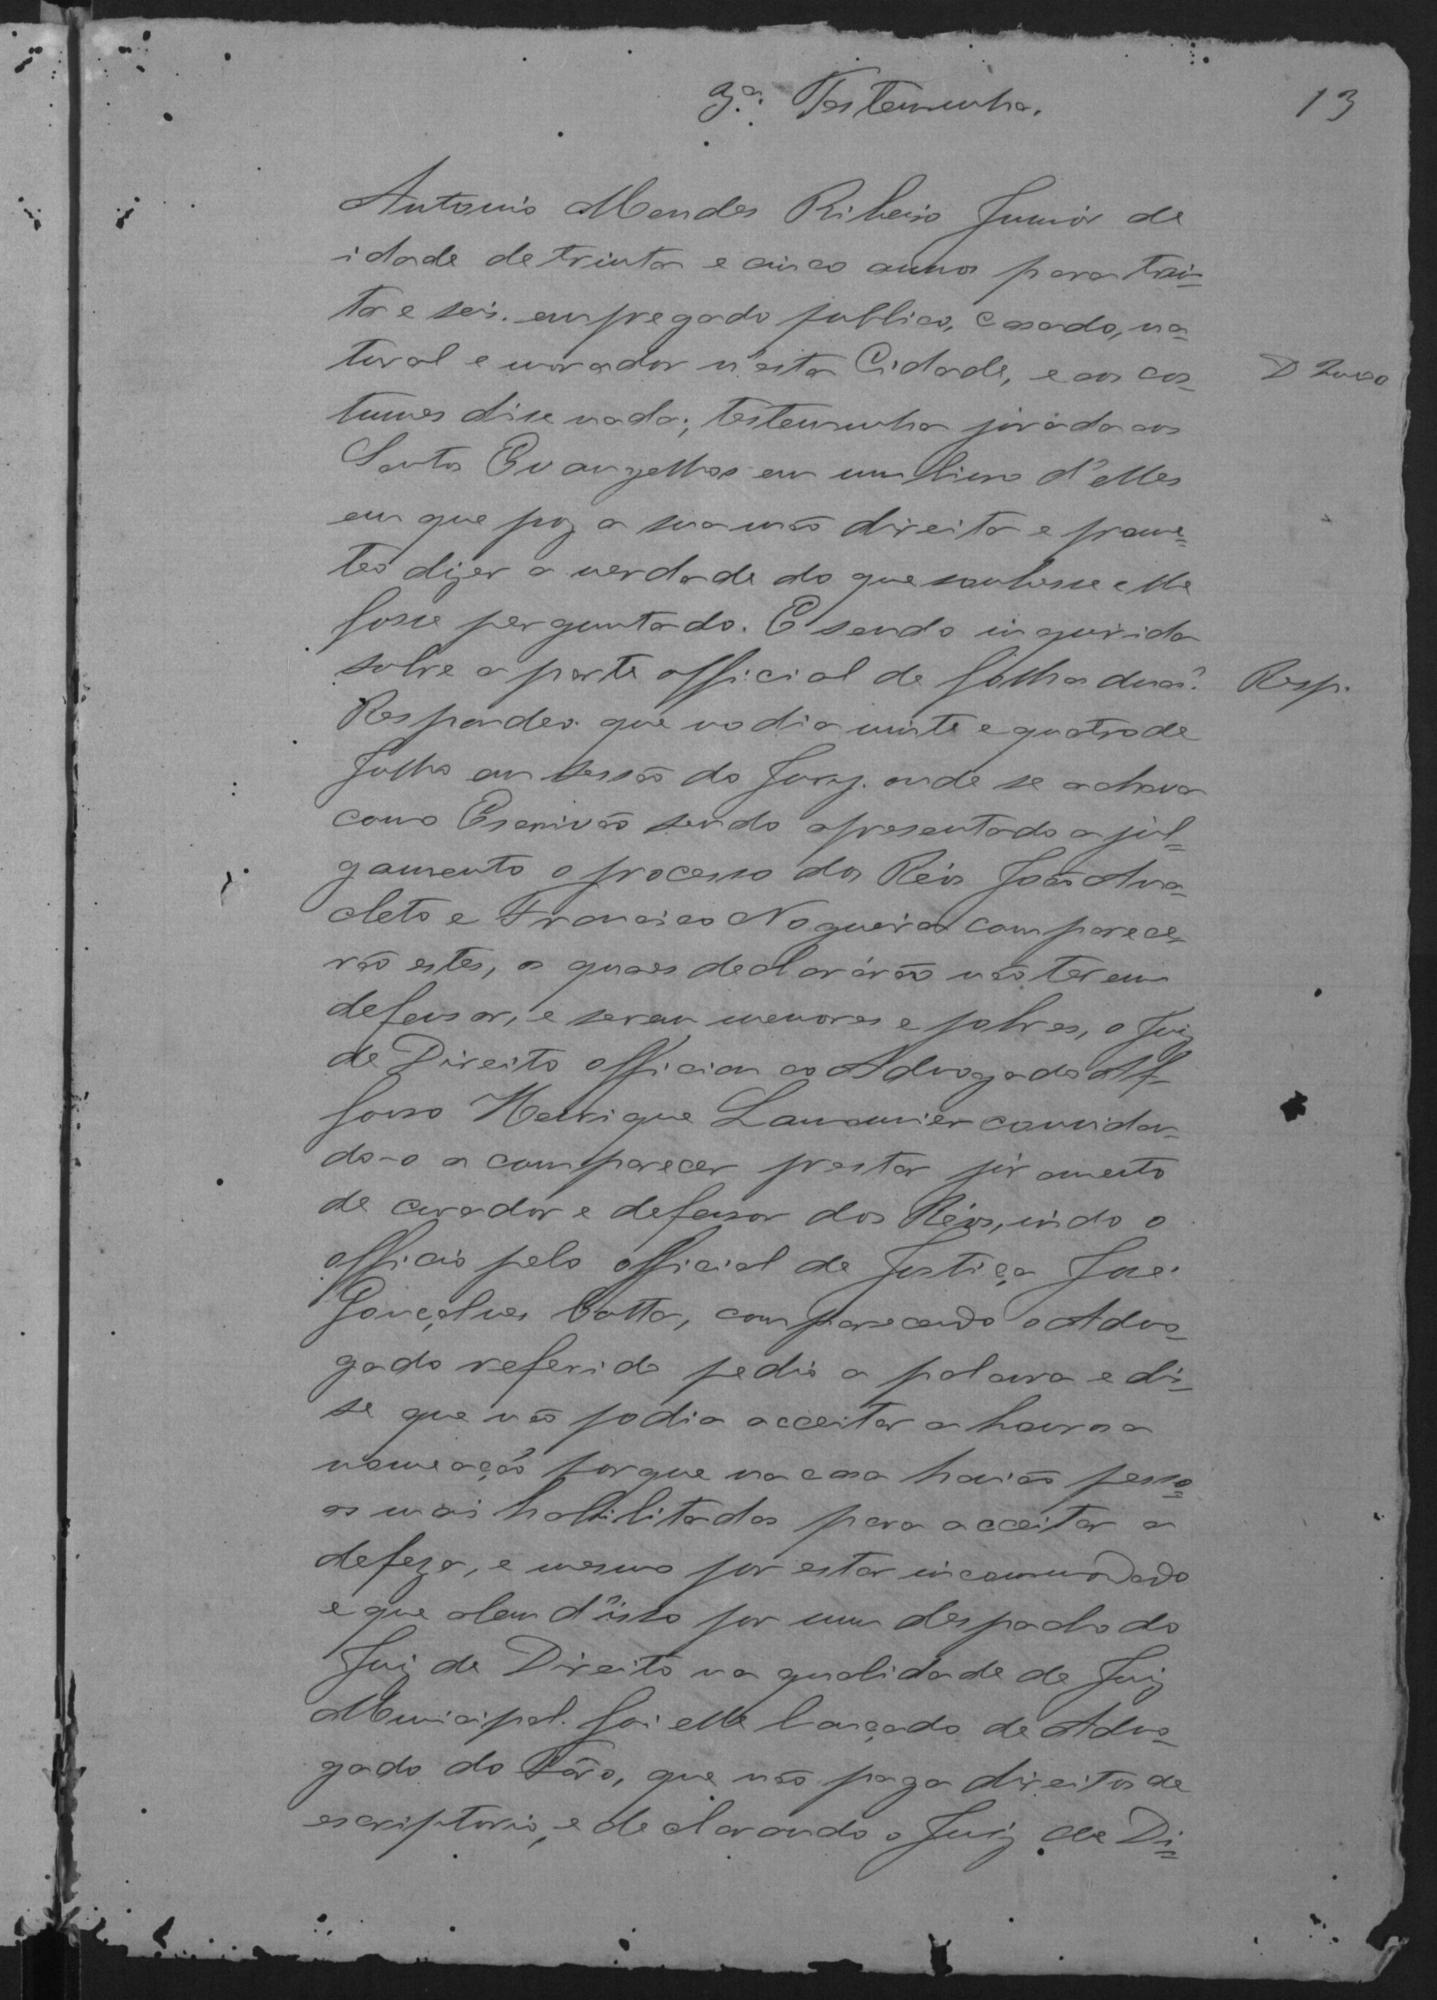 3.ª Testemunha.
13
Antonio Mendes Ribeiro Junior de
idade de trinta e cinco annos para trin=
ta e seis. empregado publico, casado, na=
tural e morador n'esta Cidade, e aos cos=
tumes disse nada; testemunha jurada aos
Santos Evangelhos em um livro d'elles
em que poz a sua mão direita e prome=
teo dizer a verdade do que soubesse e lhe
fosse perguntado. E sendo inquirida
sobre a parte official de folha duas?
Resp.
Respondeo que no dia vinte e quatro de
Julho em sessão do Jury. onde se achava
como Escrivão sendo apresentado a jul=
gamento o processo dos Réos João Ana=
cleto e Francisco Nogueira comparece=
rão estes, os quaes declararão não terem
defensor, e serem menores e pobres, o Juiz
de Direito officiou ao Advogado Af=
fonso Henrique Lamounier convidan=
do-o a comparecer prestar juramento
de curador e defensor dos Réos, indo o
officio pelo official de Justiça José
Gonçalves Cotta, comparecendo o Advo=
gado referido pedio a palavra e dis=
se que não podia acceitar a honrosa
nomeação porque na casa havião pesso=
as mais habilitadas para acceitar a
defeza, e mesmo por estar incommodado
e que alem d'isso por um despacho do
Juiz de Direito na qualidade de Juiz
Municipal. foi elle lançado de Advo=
gado do Fôro, que não paga direitos de
escriptorio, e declarando o Juiz de Di=